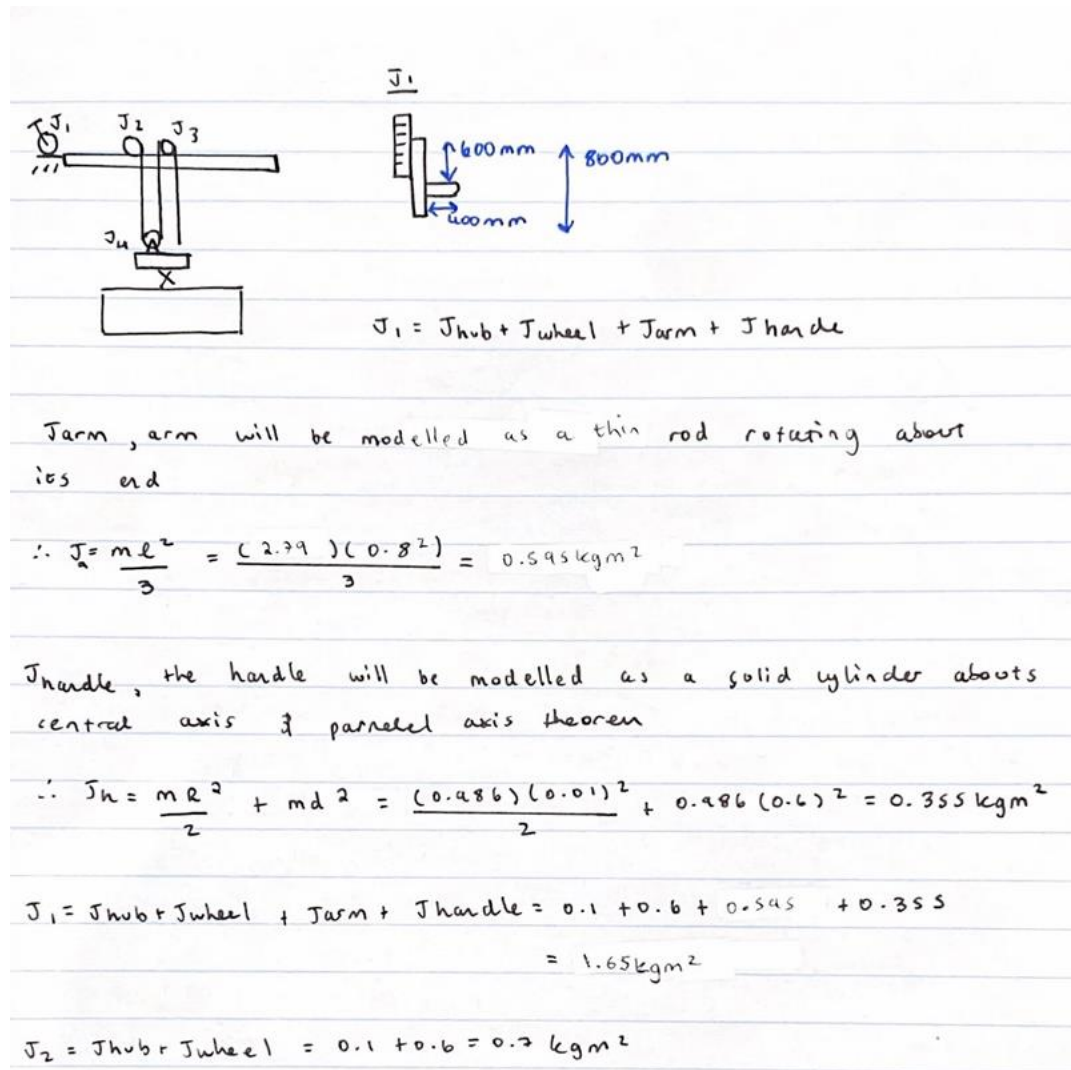 J1
J1 J2 J3
600mm 800mm
400mm
J4
J1 = Jhub + Jwheel + Jarm + Jhande
Jarm, arm will be modelled as a thin rod rotating about
its end
∴ Ja = ml²/3 = (2.79)(0.8²)/3 = 0.595kgm²
Jhandle, the handle will be modelled as a solid cylinder abouts
central axis & parnelel axis theoren
∴ Jh = mR²/2 + md² = (0.986)(0.01)²/2 + 0.986(0.6)² = 0.355kgm²
J1 = Jhub + Jwheel + Jarm + Jhandle = 0.1 + 0.6 + 0.595 + 0.355
= 1.65kgm²
J2 = Jhub + Jwheel = 0.1 + 0.6 = 0.7 kgm²